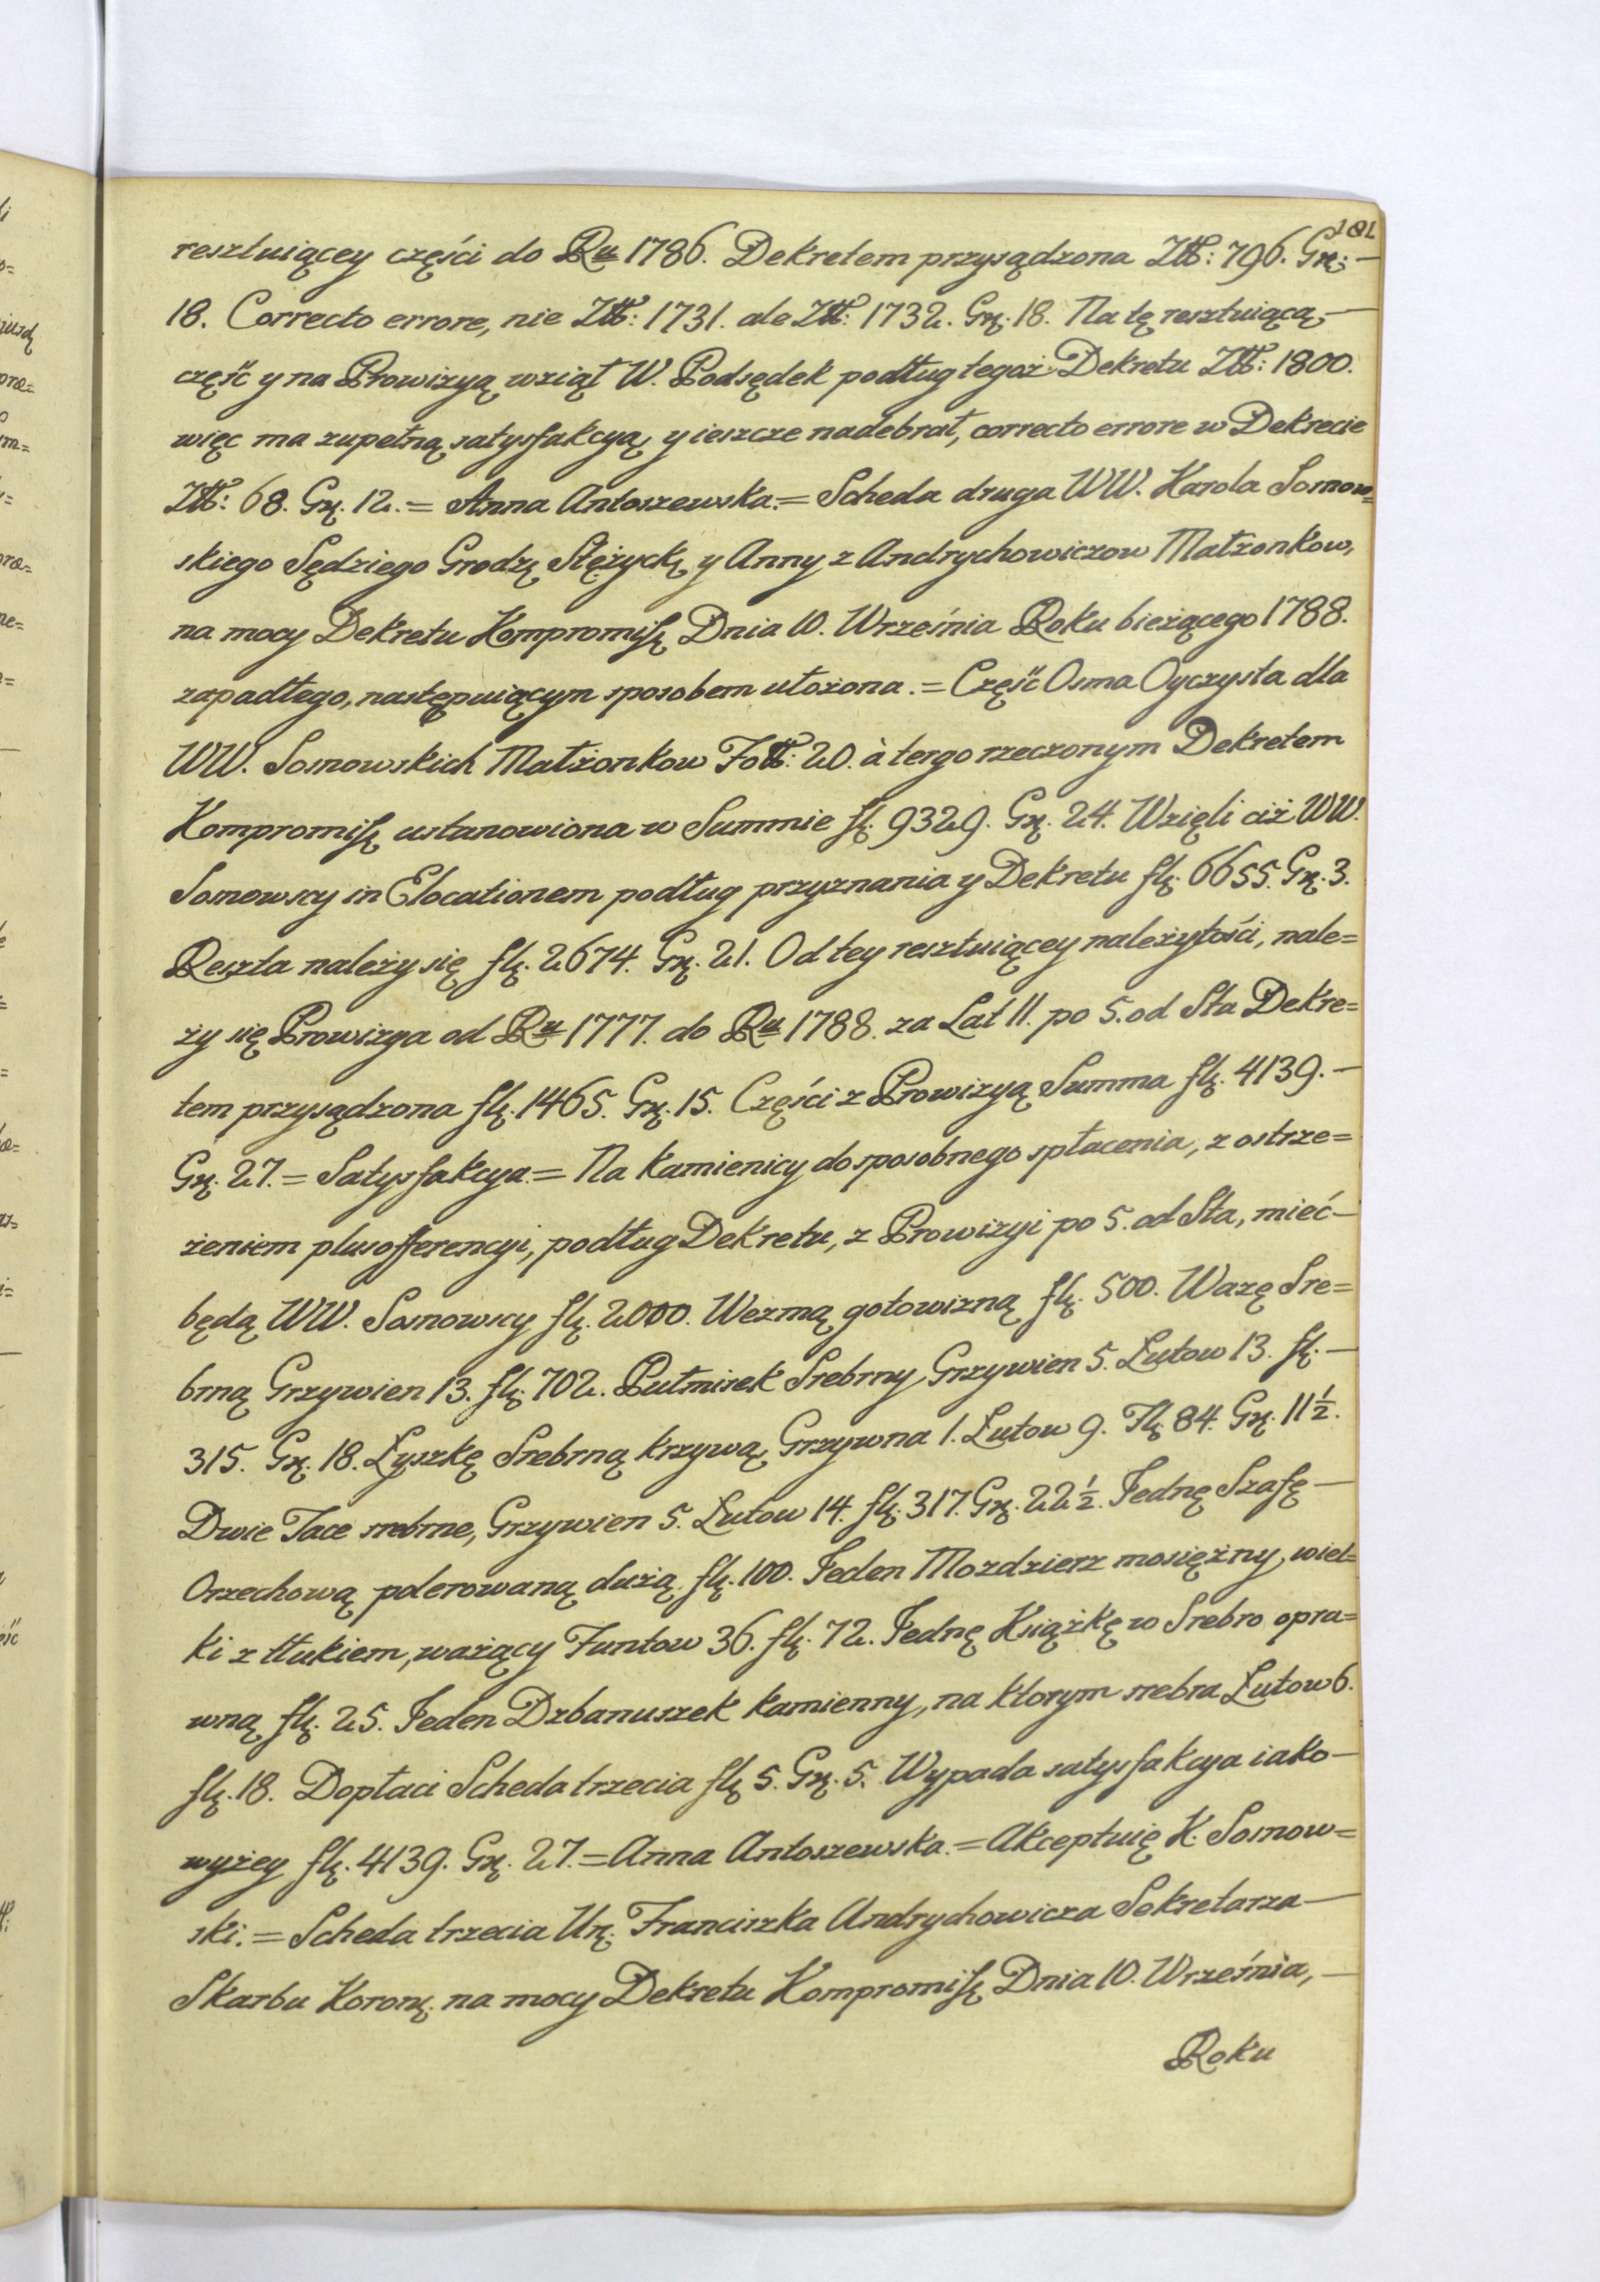 181
resztuiącey częśći do Ru 1786. Dekretem przysądzona Ztt: 796. Gr: —
18. Correcto errore, nie Ztt: 1731. ale Ztt: 1732. Gr. 18. Na tę resztuiącą, —
część y na Prowizyą wziął W. Podsędek podług tegoż Dekretu Ztt: 1800.
więc ma zupełną satysfakcyą, y ieszcze nadebrał, correcto errore w Dekrecie
Ztt: 68. Gr. 12. = Anna Antoszewska. = Scheda druga WW. Karola Somow=
skiego Sędziego Grodz. Stężyck. y Anny z Andrychowiczow Małżonkow,
na mocy Dekretu Kompromiss. Dnia 10. Wrześńia Roku bieżącego 1788.
zapadłego, następuiącym sposobem ułożona. = Część Osma Oyczysta dla
WW. Somowskich Małżonkow Fott: 20. à tergo rzeczonym Dekretem
Kompromiss. ustanowiona w Summie fl. 9329. Gr. 24. Wzięli ciż WW.
Somowscy in Elocationem podług przyznania y Dekretu fl. 6655. Gr. 3.
Reszta należy się fl. 2674. Gr. 21. Od tey resztuiącey należytośći, nale=
ży się Prowizya od Ru 1777. do Ru 1788. za Lat 11. po 5. od Sta Dekre=
tem przysądzona fl. 1465. Gr. 15. Częśći z Prowizyą Summa fl. 4139. —
Gr. 27. = Satysfakcya. = Na Kamienicy do sposobnego spłacenia, z ostrze=
żeniem plusofferencyi, podług Dekretu, z Prowizyi po 5. od Sta, mieć —
będą WW. Somowscy fl. 2000. Wezmą gotowizną fl. 500. Wazę Sre=
brną Grzywien 13. fl. 702. Putmisek Srebrny Grzywien 5. Łutow 13. fl. —
315. Gr. 18. Łyszkę Srebrną krzywą, Grzywna 1. Łutow 9. Fl. 84. Gr. 11½.
Dwie Tace srebrne, Grzywien 5. Łutow 14. fl. 317. Gr. 22½. Jednę Szafę —
Orzechową polerowaną dużą fl. 100. Jeden Mozdzierz mosiężny, wiel=
ki z tłukiem, ważący Funtow 36. fl. 72. Jednę Książkę w Srebro opra=
wną fl. 25. Jeden Dzbanuszek kamienny, na ktorym srebra Łutow 6.
fl. 18. Dopłaci Scheda trzecia fl. 5. Gr. 5. Wypada satysfakcya iako —
wyżey fl. 4139. Gr. 27. = Anna Antoszewska. = Akceptuię K. Somow=
ski. = Scheda trzecia Ur. Franciszka Andrychowicza Sekretarza —
Skarbu Koron. na mocy Dekretu Kompromiss. Dnia 10. Wrześńia, —
Roku